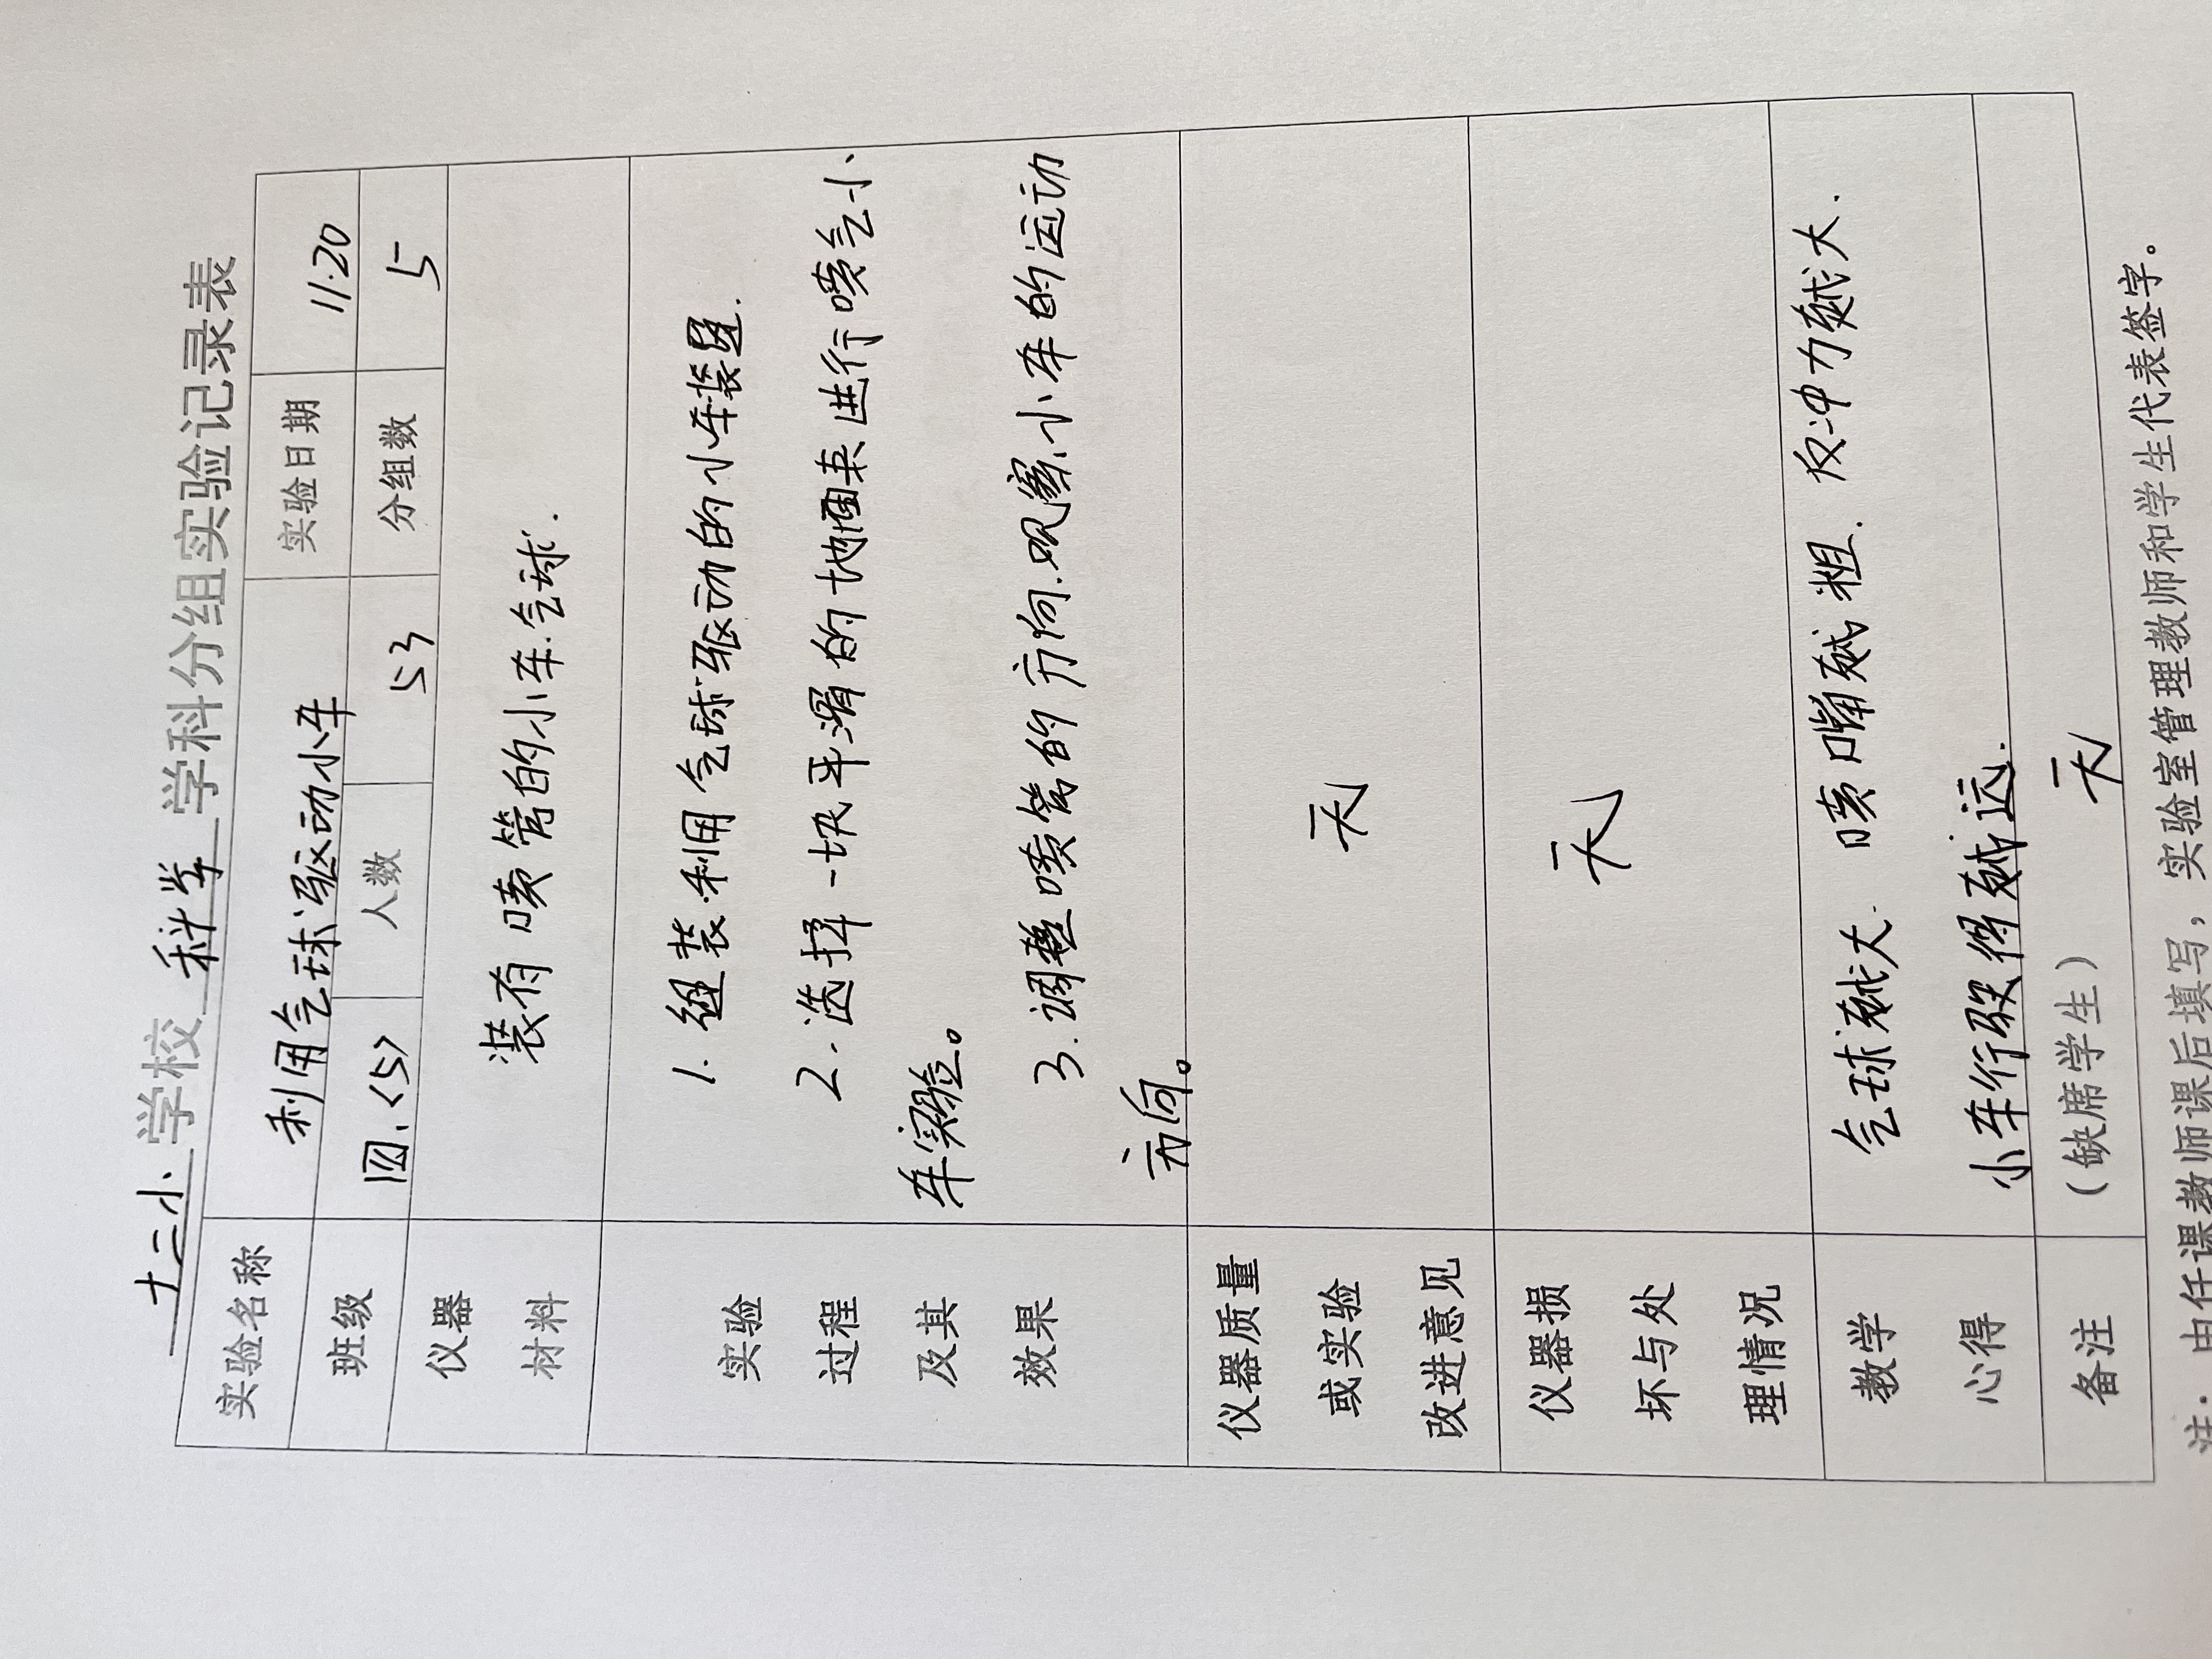 十三小学校 科学 学科分组实验记录表
实验名称 利用气球驱动小车 实验日期 11.20
班级 四.<5> 人数 53 分组数 5
仪器 材料 装有喷管的小车.气球.
实验 过程 及其 效果
1. 组装.利用气球驱动的小车装置.
2. 选择一块平滑的地面来进行喷气小
车实验。
3. 调整喷管的方向.观察小车的运动
方向。
仪器质量 或实验 改进意见 无
仪器损 坏与处 理情况 无
教学 心得 气球越大. 喷嘴越粗. 反冲力越大.
小车行驶得越远.
备注 (缺席学生) 无
注：由任课教师课后填写，实验室管理教师和学生代表签字。